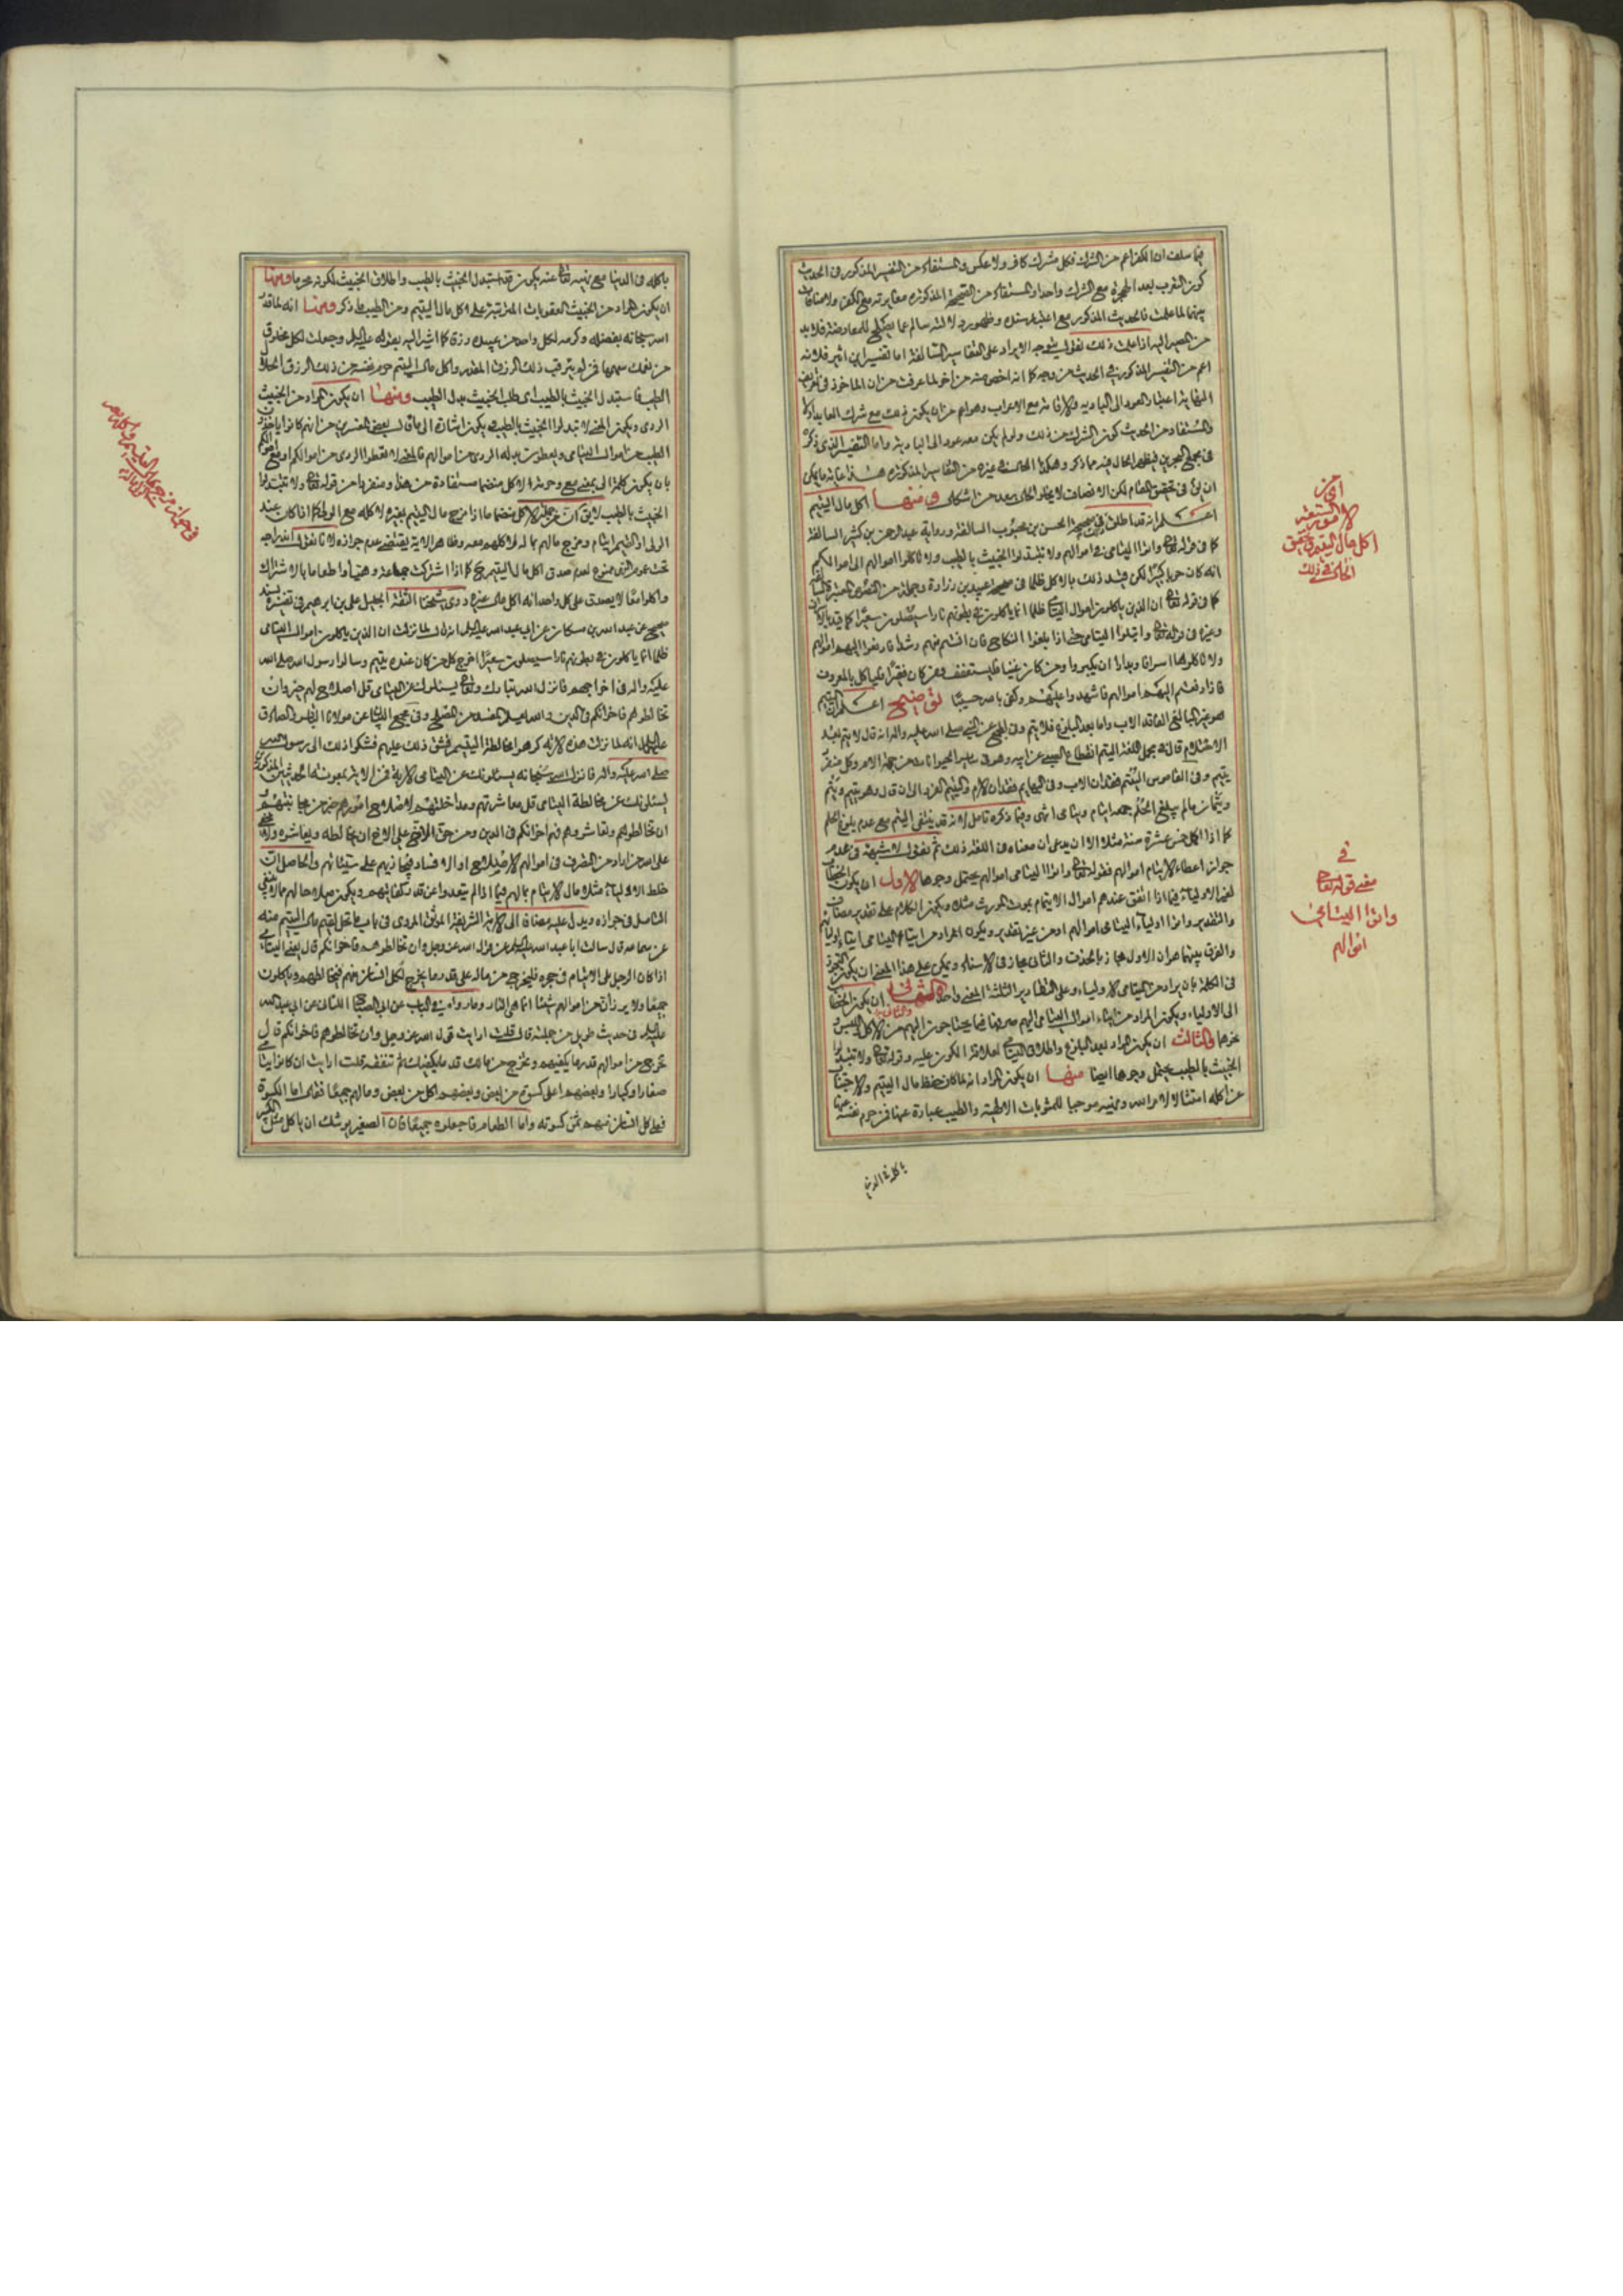 فيما سلف ان الكفر اعم من الشرك فكل مشرك كافر ولا عكس والمستفاد من التفسير المذكور في الحديث
كون التعرب بعد الهجرة مع الشرك واحدا والمستفاد من الصحيحة المذكورة مغايرته مع الكفر ولا منافات
بينهما لما علمت فالحديث المذكور مع اعتبار سنده وظهور دلالته سالم عما يصلح للمعارضة فلا بد
من المصير اليه اذا علمت ذلك نقول يتوجه الايراد على التفاسير السالفة اما تفسير ابن اثير فلانه
اعم من التفسير المذكور في الحديث من وجه كما انه اخص منه من اخر لما عرفت من ان الماخوذ في تعريف
النهاية اعتبار العود الى البادية والاقامة مع الاعراب وهو اعم من ان يكون ذلك مع شرك العائد او لا
والمستفاد من الحديث كون الشرك من ذلك ولو لم يكن معه عود الى البادية واما التفسير الذي ذكره
في مجمع البحرين فيظهر الحال فيه مما ذكر وهكذا الحال في غيره من التفاسير المذكورة هذا غاية ما يمكن
ان يقال في تحقيق المقام لكن الانصاف لا يخلو الحال بعد من اشكال ومنها اكل مال اليتيم
اعلم انه قد اطلق ذلك في صحيحة الحسن بن محبوب السالفة ورواية عبد الرحمن بن كثير السالفة
كما في قوله تعالى واتوا اليتامى اموالهم ولا تتبدلوا الخبيث بالطيب ولا تاكلوا اموالهم الى اموالكم
انه كان حوبا كبيرا لكن قيد ذلك بالاكل ظلما في صحيحة عبيد بن زرارة وجملة من النصوص المعتبرة السالفة
كما في قوله تعالى ان الذين ياكلون اموال اليتامى ظلما انما ياكلون في بطونهم نارا وسيصلون سعيرا كما قيد بالاسراف
وغيره في قوله تعالى وابتلوا اليتامى حتى اذا بلغوا النكاح فان انستم منهم رشدا فادفعوا اليهم اموالهم
ولا تاكلوها اسرافا وبدارا ان يكبروا ومن كان غنيا فليستعفف ومن كان فقيرا فلياكل بالمعروف
فاذا دفعتم اليهم اموالهم فاشهدوا عليهم وكفى بالله حسيبا توضيح اعلم ان اليتيم
هو غير البالغ الفاقد الاب واما بعد البلوغ فلا يتم وفي المجمع عن النبي صلى الله عليه واله انه قال لا يتم بعد
الاحتلام قال في مجمل اللغة اليتم انقطاع الصبي عن ابيه وهو في ساير الحيوانات من جهة الام وكل منفرد
يتيم وفي القاموس اليتم فقدان الاب وفي البهايم فقدان الام واليتيم الفرد الى ان قال وهو يتيم ويتم
ويتمان ما لم يبلغ الحلم جمعه ايتام ويتامى انتهى وفيما ذكره تامل لانه قد ينتفي اليتم مع عدم بلوغ الحلم
كما اذا اكمل خمس عشرة سنة مثلا الا ان يدعى ان معناه في اللغة ذلك ثم نقول لا شبهة في عدم
جواز اعطاء الايتام اموالهم فقوله تعالى واتوا اليتامى اموالهم يحتمل وجوها الاول ان يكون الخطاب
لغير الاولياء فيما اذا اتفق عندهم اموال الايتام بموت المورث مثلا ويكون الكلام على تقدير مضاف
والتقدير واتوا اولياء اليتامى اموالهم او من غير تقدير ويكون المراد من ايتاء اليتامى ايتاء اوليائهم
والفرق بينهما هو ان الاول مجاز بالحذف والثاني مجاز في الاسناد ويمكن على هذا المعنى ان يكون التجوز
في الكلمة بان يراد من اليتامى الاولياء وعلى التقادير الثلثة المعنى واحد والثاني ان يكون الخطاب
الى الاولياء ويكون المراد من ايتاء اموال اليتامى اليهم صرفها فيما يحتاجون اليهم من الاكل واللبس و
نحوهما والثالث ان يكون المراد بعد البلوغ واطلاق اليتامى لعلاقة الكون عليه وقوله تعالى ولا تتبدلوا
الخبيث بالطيب يحتمل وجوها ايضا منها ان يكون المراد انه لما كان حفظ مال اليتيم والاجتناب
عن اكله امتثالا لامر الله ونهيه موجبا للمثوبات الاخروية والطيب عبارة عنها فمن حرم نفسه عنها
باكله في الدنيا
احكام
الامور المتعلقة
اكل مال اليتيم وتحقيق
الحال في ذلك
في
معنى قوله تعالى
واتوا اليتامى
اموالهم
باكله في الدنيا مع نهيه تعالى عنه يكون قد استبدل الخبيث بالطيب واطلاق الخبيث لكونه محرما ومنها
ان يكون المراد من الخبيث العقوبات المترتبة على اكل مال اليتيم ومن الطيب ما ذكر ومنها انه لما قدر
الله سبحانه بفضله وكرمه لكل واحد من عبيده رزقا كما اشير اليه بقوله عليه السلام وجعلت لكل مخلوق
من نفسك سهما فمن لم يترقب ذلك الرزق المقدر واكل مال اليتيم حرم نفسه من ذلك الرزق الحلال
الطيب فاستبدل الخبيث بالطيب اي طلب الخبيث بدل الطيب ومنها ان يكون المراد من الخبيث
الردي ويكون المعنى لا تبدلوا الخبيث بالطيب فيكون اشارة الى ما قال بعض المفسرين من انهم كانوا ياخذون
الطيب من اموال اليتامى ويعطون بدله الردي من اموالهم فالمعنى لا تعطوا الردي من اموالكم
بان يكون كلمة الى بمعنى مع وحرمة الاكل منضما مستفادة من هذا ومنفردا من قوله تعالى ولا تتبدلوا
الخبيث بالطيب لا يقال ان من جملة الاكل منضما ما اذا مزج مال اليتيم بغيره لاكله مع الولي كما اذا كان عند
الولي ايتام ومزج مالهم بماله لاكلهم معه وظاهر الاية يقتضي عدم جوازه لانا نقول اندراجه
تحت عموم النهي ممنوع لعدم صدق اكل مال اليتيم كما اذا اشترك جماعة وهيئوا طعاما بالاشتراك
واكلوا معا لا يصدق على كل واحد انه اكل مال غيره وروى شيخنا الثقة الجليل علي بن ابراهيم في تفسيره بسند
صحيح عن عبد الله بن مسكان عن ابي عبد الله عليه السلام انه قال لما نزلت ان الذين ياكلون اموال اليتامى
ظلما انما ياكلون في بطونهم نارا وسيصلون سعيرا اخرج كل من كان عنده يتيم وسالوا رسول الله صلى الله
عليه واله في اخراجهم فانزل الله تبارك وتعالى يسئلونك عن اليتامى قل اصلاح لهم خير وان
تخالطوهم فاخوانكم في الدين والله يعلم المفسد من المصلح وفي مجمع البيان عن مولانا الصادق
عليه السلام انه لما نزلت هذه الاية كرهوا مخالطة اليتيم فشق ذلك عليهم فشكوا ذلك الى رسول الله
صلى الله عليه واله فانزل الله سبحانه يسئلونك عن اليتامى الاية
يسئلونك عن مخالطة اليتامى قل معاشرتهم ومداخلتهم لاصلاح امورهم خير من مجانبتهم
ان تخالطوهم وتعاشروهم فهم اخوانكم في الدين ومن حق الاخ على الاخ ان يخالطه ويعاشره
على الله من اراد من التصرف في اموالهم الاصلاح او الافساد فيجازيهم على نياتهم والحاصل ان
خلط الاولياء مثلا مال الايتام بمالهم فيما اذا لم يتعدوا عن قدر كفايتهم ويكون صلاحا لهم مما لا ينبغي
التامل في جوازه ويدل عليه مضافا الى الاية الشريفة الموثق المروي في باب ما يحل لقيم مال اليتيم منه
عن سماعة قال سالت ابا عبد الله عليه السلام عن قول الله عز وجل وان تخالطوهم فاخوانكم قال يعني اليتامى
اذا كان الرجل يلي الايتام في حجره فليخرج من ماله على قدر ما يخرج لكل انسان منهم فيخالطهم وياكلون
جميعا ولا يرزان من اموالهم شيئا انما هي النار وما رواه في الباب عن ابي الصباح الكناني عن ابي عبد الله
عليه السلام في حديث طويل من جملته قال قلت ارايت قول الله عز وجل وان تخالطوهم فاخوانكم قال
تخرج من اموالهم قدر ما يكفيهم وتخرج من مالك قدر ما يكفيك ثم تنفقه قلت ارايت ان كانوا يتامى
صغارا وكبارا وبعضهم اعلى كسوة من بعض وبعضهم اكل من بعض ومالهم جميعا فقال اما الكسوة
فعلى كل انسان منهم ثمن كسوته واما الطعام فاجعلوه جميعا فان الصغير يوشك ان ياكل مثل الكبير
في جواز مزج مال اليتيم